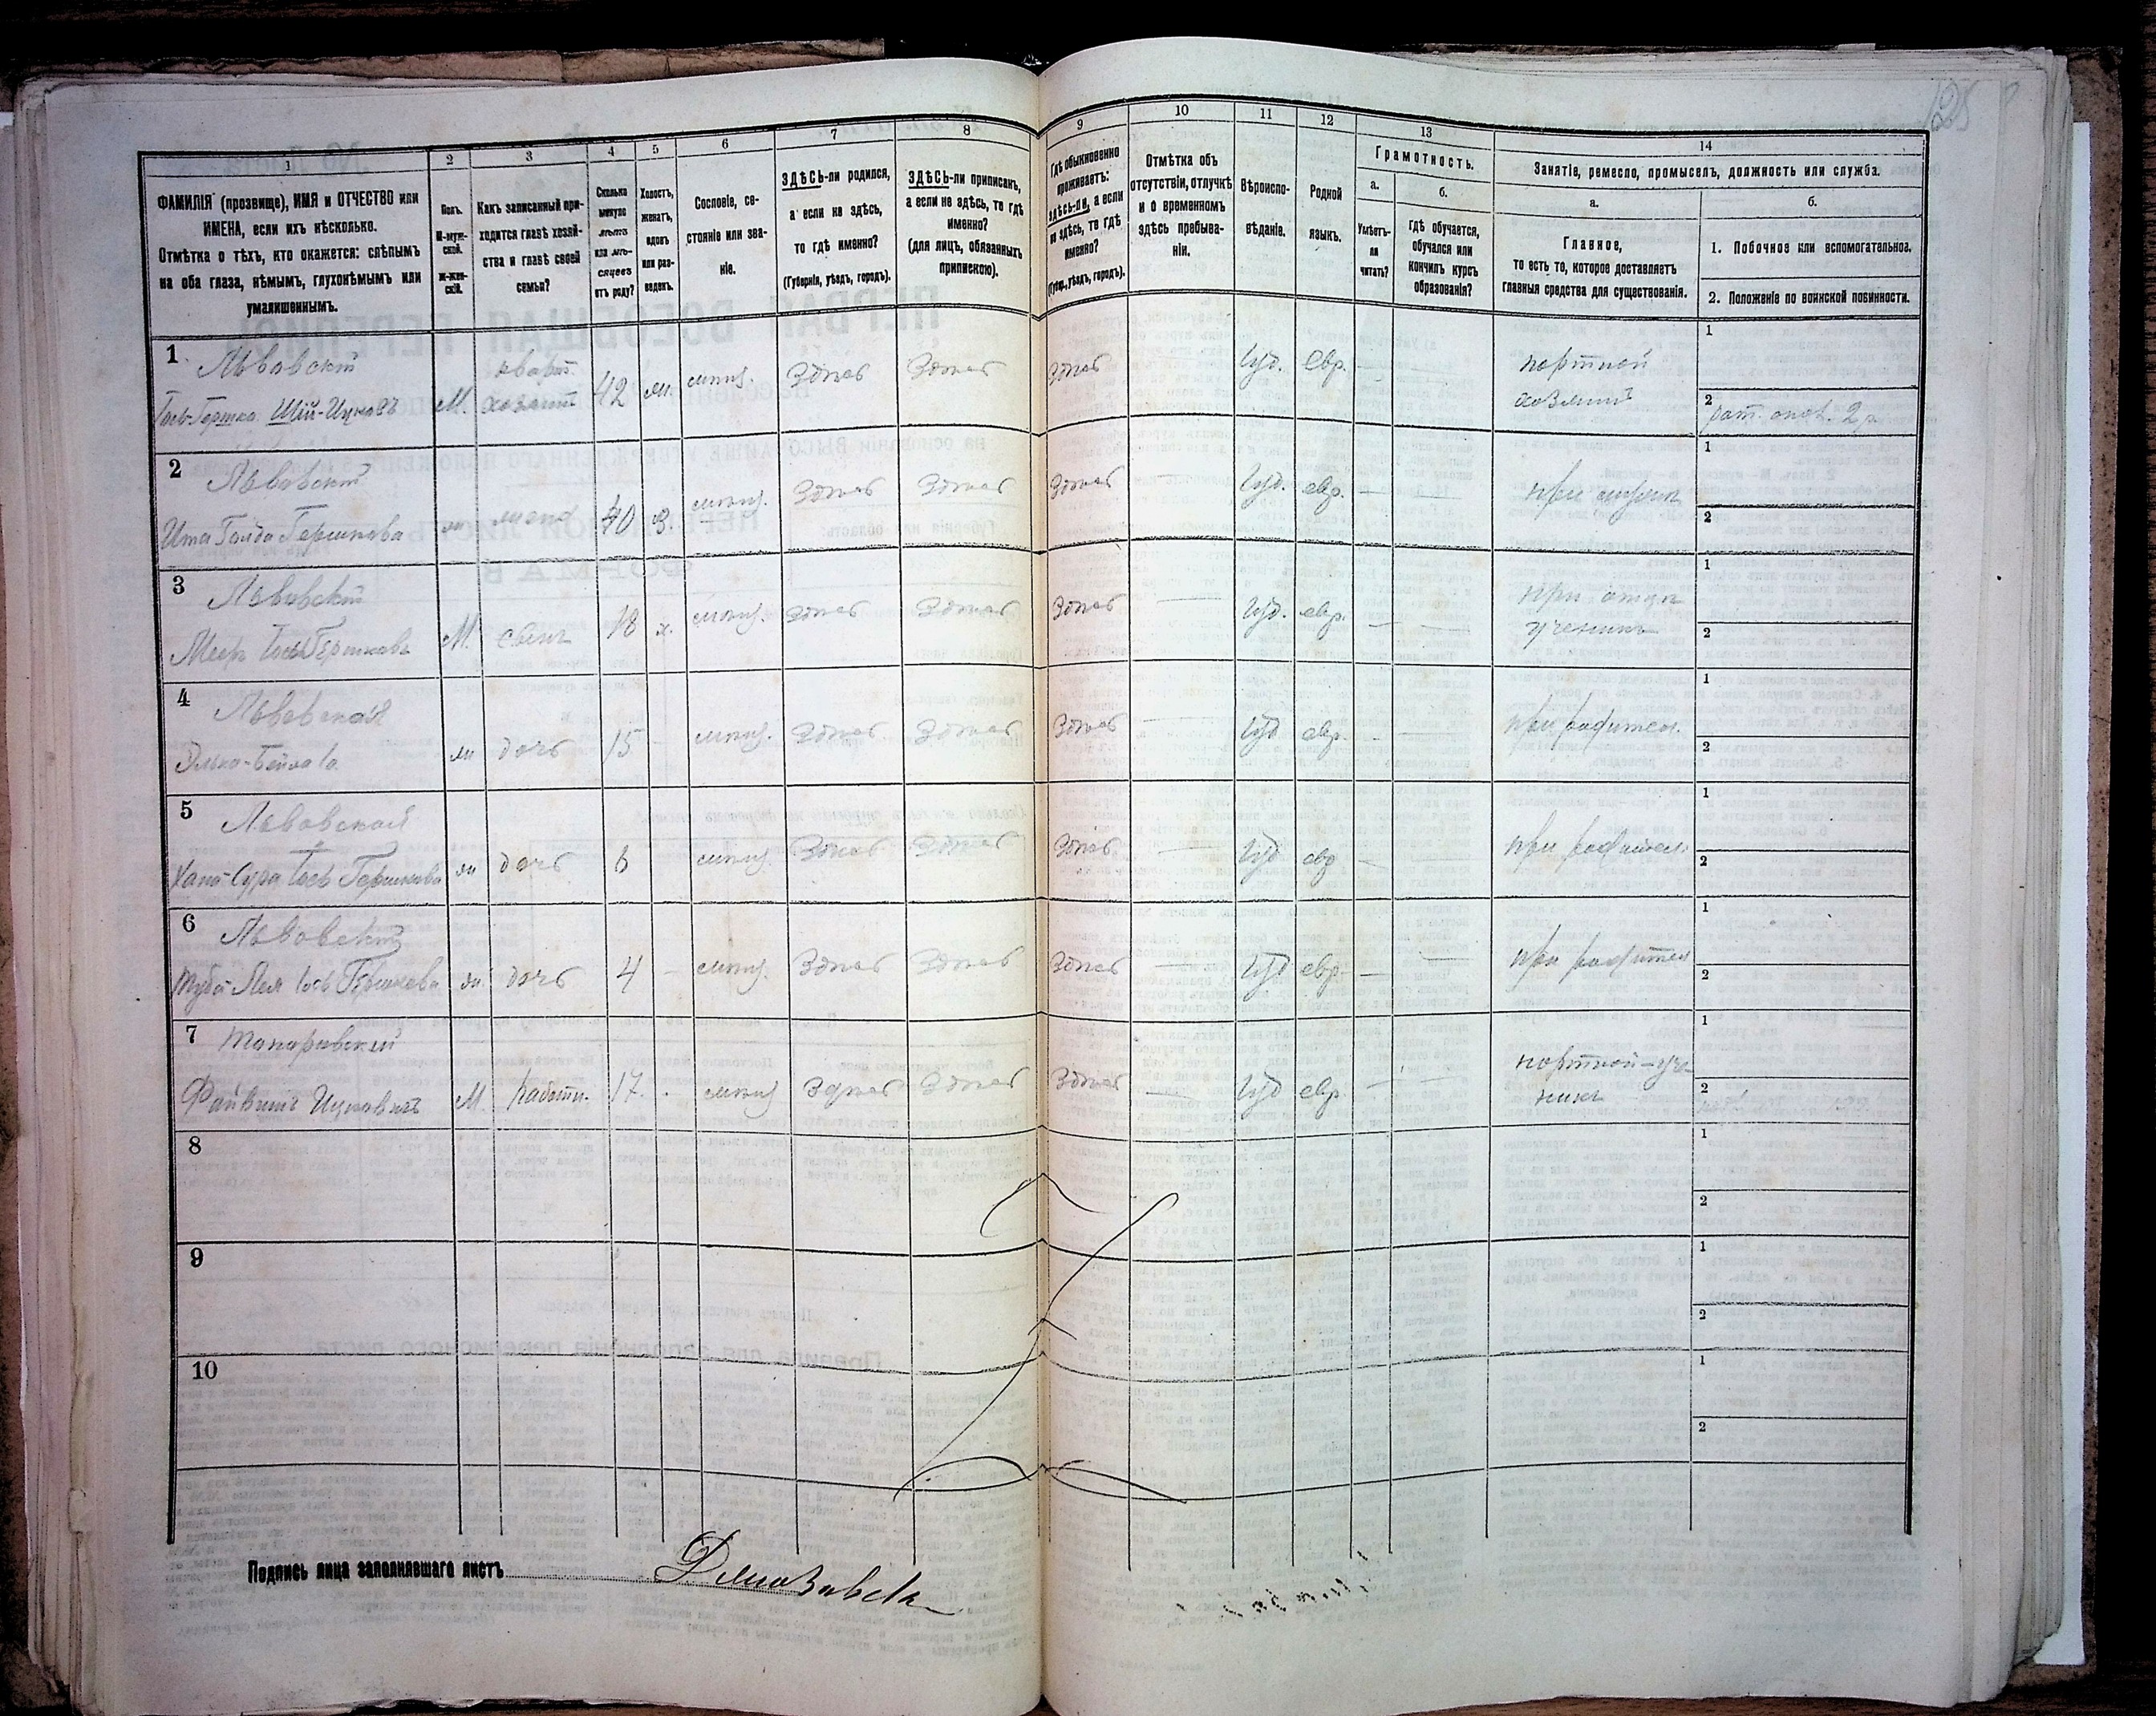 125
1
ФАМИЛІЯ (прозвище), ИМЯ и ОТЧЕСТВО или
ИМЕНА, если ихъ нѣсколько.
Отмѣтка о тѣхъ, кто окажется: слѣпымъ
на оба глаза, нѣмымъ, глухонѣмымъ или
умалишеннымъ.
2
Полъ.
М-муж-
ской.
Ж-жен-
скій.
3
Какъ записанный при-
ходится главѣ хозяй-
ства и главѣ своей
семьи?
4
Сколько
минуло
лѣтъ
или мѣ-
сяцевъ
отъ роду?
5
Холостъ,
женатъ,
вдовъ
или раз-
веденъ.
6
Сословіе, со-
стояніе или зва-
ніе.
7
ЗДѢСЬ-ли родился,
а если не здѣсь,
то гдѣ именно?
(Губернія, уѣздъ, городъ).
8
ЗДѢСЬ-ли приписанъ,
а если не здѣсь, то гдѣ
именно?
(для лицъ, обязанныхъ
припискою).
9
Гдѣ обыкновенно
проживаетъ:
здѣсь-ли, а если
не здѣсь, то гдѣ
именно?
(Губер., уѣздъ, городъ).
10
Отмѣтка объ
отсутствіи, отлучкѣ
и о временномъ
здѣсь пребыва-
ніи.
11
Вѣроиспо-
вѣданіе.
12
Родной
языкъ.
13
Грамотность.
а.
Умѣетъ-
ли
читать?
б.
Гдѣ обучается,
обучался или
кончилъ курсъ
образованія?
14
Занятіе, ремесло, промыселъ, должность или служба.
а.
Главное,
то есть то, которое доставляетъ
главныя средства для существованія.
б.
1. Побочное или вспомогательное.
2. Положеніе по воинской повинности.
1 Львовскій
Іось-Гершко Шій-Ицковъ М. кварт. хозяинъ 42 ж. мѣщ. Здѣсь Здѣсь Здѣсь Іуд. евр. портной хозяинъ 1
2 рат. опол. 2 р
2 Львовскій
Ита Голда Гершкова ж жена 40 з. мѣщ. Здѣсь Здѣсь Здѣсь — Іуд. евр. — — при мужѣ 1
2
3 Львовскій
Меер Іось Гершковъ М. сынъ 18 х. мѣщ. Здѣсь Здѣсь Здѣсь — Іуд. евр. — — при отцѣ ученикъ 1
2
4 Львовская
Элька-Бейла Іо. ж дочь 15 - мѣщ. Здѣсь Здѣсь Здѣсь — Іуд евр. - — при родител. 1
2
5 Львовской
Хана-Сура Іось Гершкова ж дочь 6 мѣщ. Здѣсь Здѣсь Здѣсь — Іуд евр — при родител. 1
2
6 Львовскій
Лея Іось Гершкова ж дочь 4 - мѣщ. Здѣсь Здѣсь Здѣсь — Іуд евр. — при родител 1
2
7
Файвишъ Ицковичъ М. работн. 17. - мѣщ Здѣсь Здѣсь Здѣсь — Іуд евр. — — портной-уче
никъ 1
2
8 1
2
9 1
2
10 1
2
Подпись лица заполнявшаго листъ